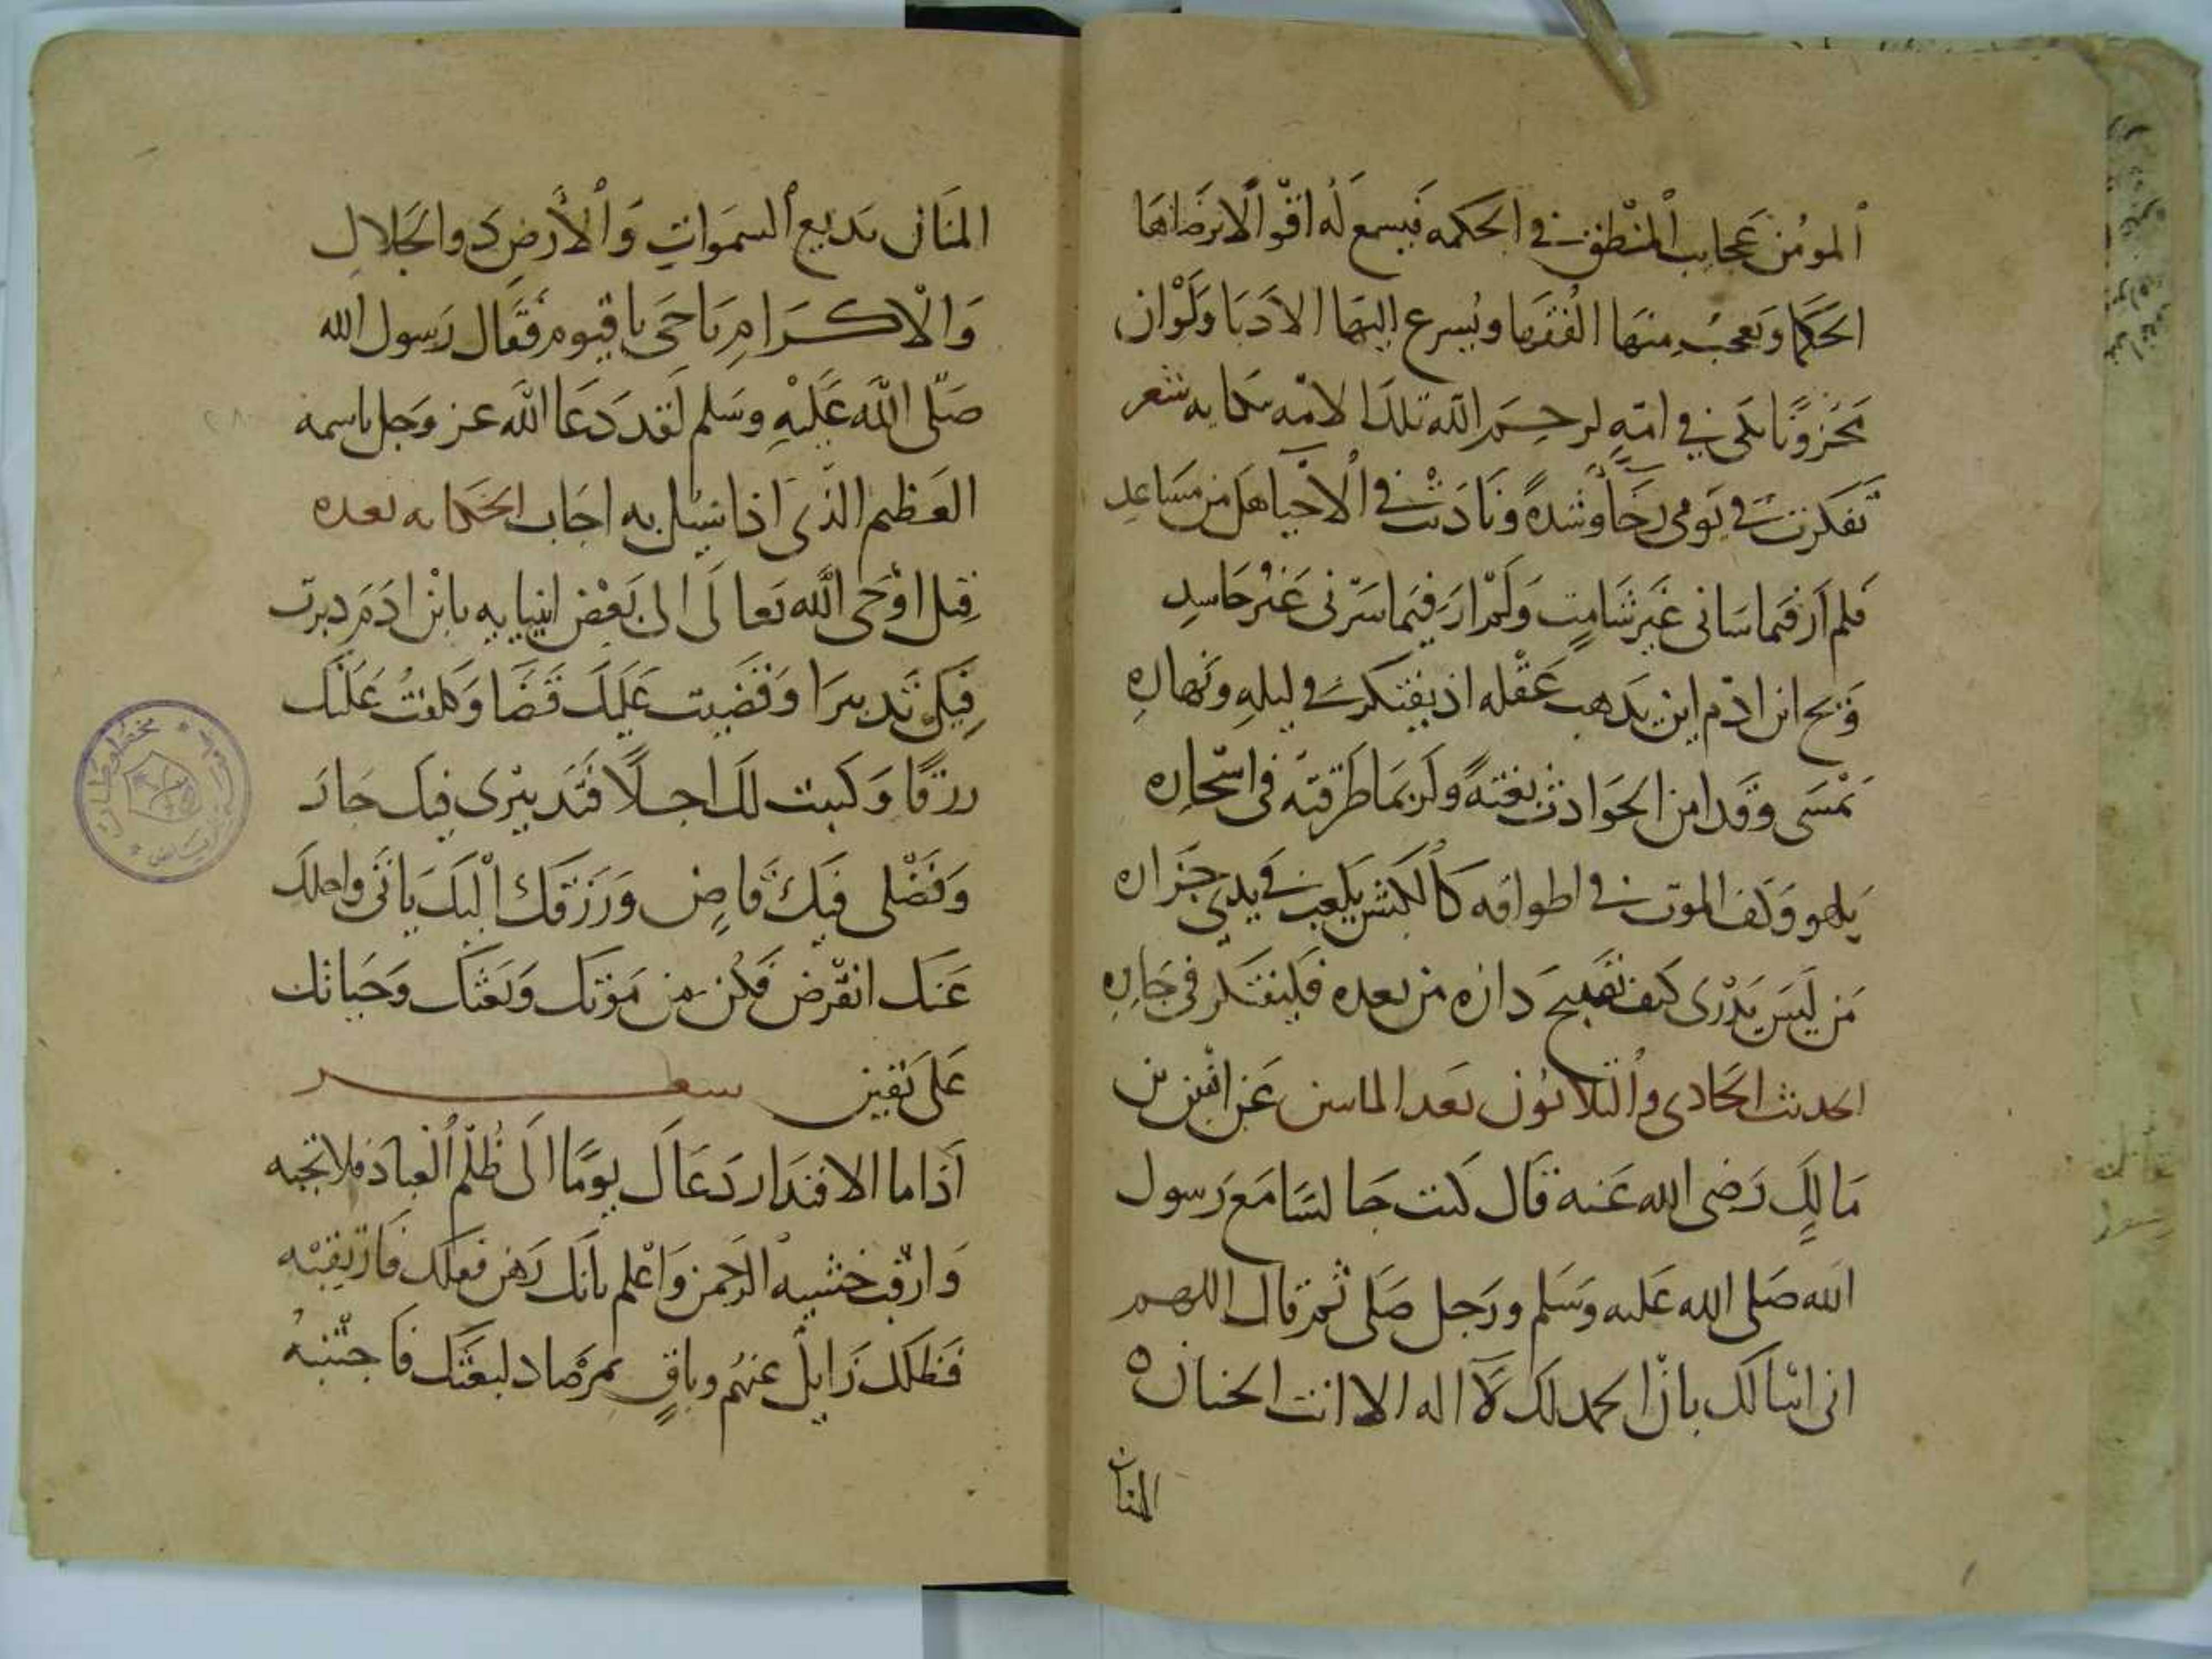 المومن عجايب المنطق في الحكمه فيسمع له اقوالا يرضاها
الحكما وتعجب منها الفقها ويسرع اليها الادبا ولو ان
محزونا بكى في امة لرحم الله تلك الامه ببكايه شعر
تفكرت في يومي رخاً وشدةً وناديت في الاحيا هل من مساعد
فلم ار فيما ساني غير شامت ولم ار فيما سرني غير حاسد
ويح ابن ادم اين يذهب عقله اذ يفتكر في ليله ونهاره
يمسى وقد امن الحوادث بغتةً ولربما طرقته في اسحاره
يلهو وكف الموت في اطواقه كالكبش يلعب في يدي جزاره
من ليس يدرى كيف تصبح داره من بعده فليفتكر في جاره
الحديث الحادى والثلاثون بعد الماىىىن عن انس بن
مالك رضى الله عنه قال كنت جالسا مع رسول
الله صلى الله عليه وسلم ورجل صلى ثم قال اللهم
انى اسالك بان الحمد لك لا اله الا انت الحنان
المنان
المنان بديع السموات والأرض ذو الجلال
والاكرام يا حى يا قيوم فقال رسول الله
صلى الله عليه وسلم لقد دعا الله عز وجل باسمه
العظيم الذى اذا سيل به اجاب الحكايه بعده
قيل اوحى الله تعالى الى بعض انبيايه يا ابن ادم دبرت
فيك تدبيرا وقضيت عليك قضا وكتبت عليك
رزقا وكتبت لك اجلا فتدبيرى فيك جار
وقضلى فيك ماض ورزقك اليك ياتى واجلك
عنك انقرض فكن من موتك وبعثك وحياتك
على يقين شعر
اذا ما الاقتدار دعاك يوما الى ظلم العباد فلا تجبه
وارقب خشية الرحمن واعلم بانك رهن فعلك فارتقبه
فظلك زايل عنهم وباق بمرصاد لبعثك فاجتنبه
مخطوطات
الرياض